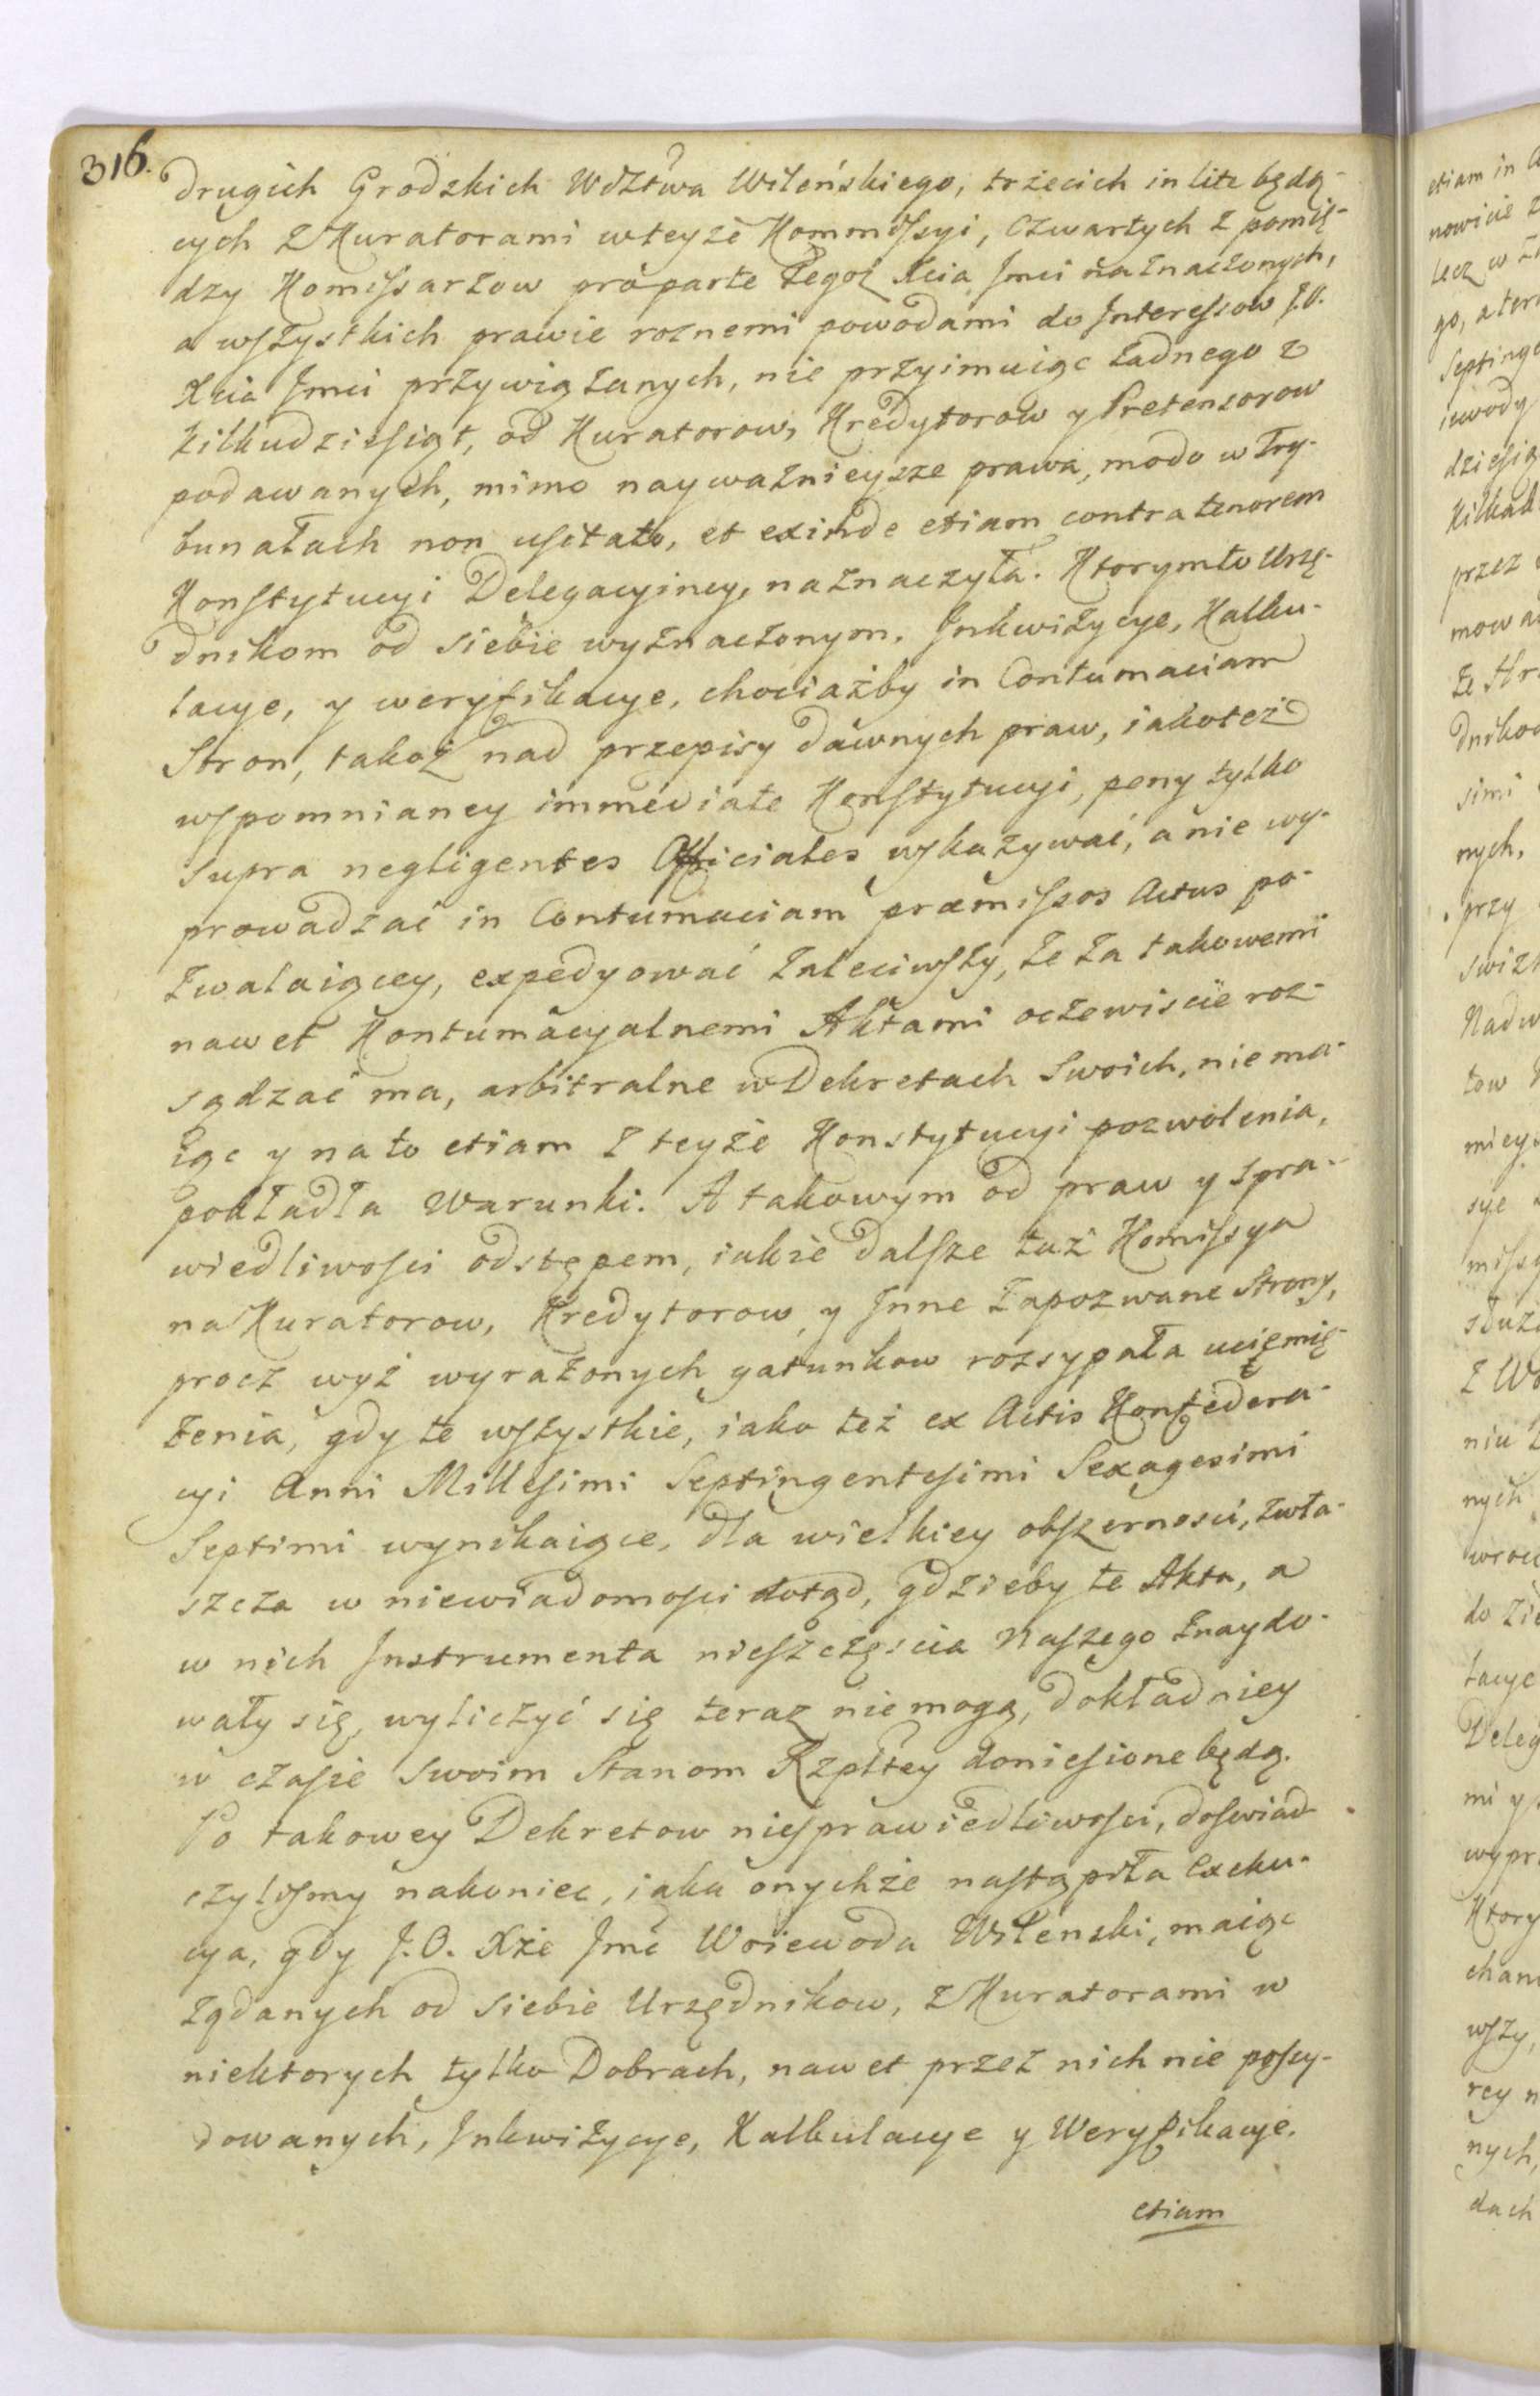 316.
drugich Grodzkich Wdztwa Wileńskiego, trzecich in lite będą-
cych z Kuratorami w teyże Kommissyi, czwartych z pomię-
dzy Komissarzow pro parte tegoż Xcia Jmci naznaczonych,
a wszystkich prawie roznemi powodami do Interessow J.O.
Xcia Jmci przywiązanych, nie przyimuiąc żadnego z
kilkudziesiąt, od Kuratorow, Kredytorow y Pretensorow
podawanych, mimo nayważnieysze prawa, modo w Try-
bunałach non usitato, et exinde etiam contra tenorem
Konstytucyi Delegacyiney, naznaczyła. Ktorymto Urzę-
dnikom od siebie wyznaczonym, Inkwizycye, Kalku-
lacye, y weryfikacye, chociażby in Contumaciam
Stron, takoż nad przepisy dawnych praw, iakoteż
wspomnianey immediate Konstytucyi, peny tylko
supra negligentes Officiales wskazywać, a nie wy-
prowadzać in Contumaciam præmissos Actus po-
zwalaiącey, expedyować zaleciwszy, że za takowemi
nawet Kontumacyalnemi Aktami oczewiscie roz-
sądzać ma, arbitralne w Dekretach Swoich, nie ma-
iąc y na to etiam z teyże Konstytucyi pozwolenia,
pokładła Warunki. A takowym od praw y spra-
wiedliwosci odstępem, iakie dalsze taż Komissya
na Kuratorow, Kredytorow, y Inne zapozwane Strony,
procz wyż wyrażonych gatunkow rozsypała uciemię-
żenia, gdy te wszystkie, iako też ex Actis Konfedera-
cyi Anni Millesimi Septingentesimi Sexagesimi
Septimi wynikaiące, dla wielkiey obszernosci, zwła-
szcza w niewiadomosci dotąd, gdzieby te Akta, a
w nich Instrumenta nieszczęscia Naszego znaydo-
wały się, wyliczyć się teraz nie mogą, dokładniey
w czasie swoim Stanom Rzpltey doniesione będą.
Po takowey Dekretow niesprawiedliwosci, doswiad-
czylismy nakoniec, iaka onychże nastąpiła Exeku-
cya, gdy J.O. Xże Jmć Woiewoda Wilenski, maiąc
żądanych od siebie Urzędnikow, z Kuratorami w
niektorych tylko Dobrach, nawet przez nich nie possy-
dowanych, Inkwizycye, Kalkulacye y Weryfikacye,
etiam